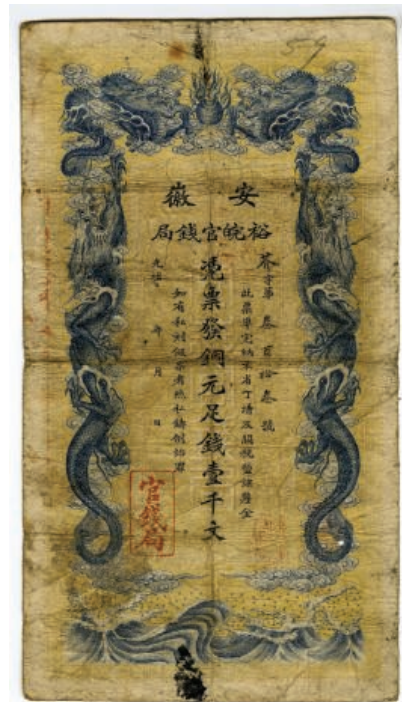 59
安徽
裕皖官錢局
芥字第叁百拾叁號
此票準完納本省丁漕及關稅鹽課釐金
憑票發銅元足錢壹千文
如有私刻假票者照私鑄例治罪
光緒 年 月 日
官錢局